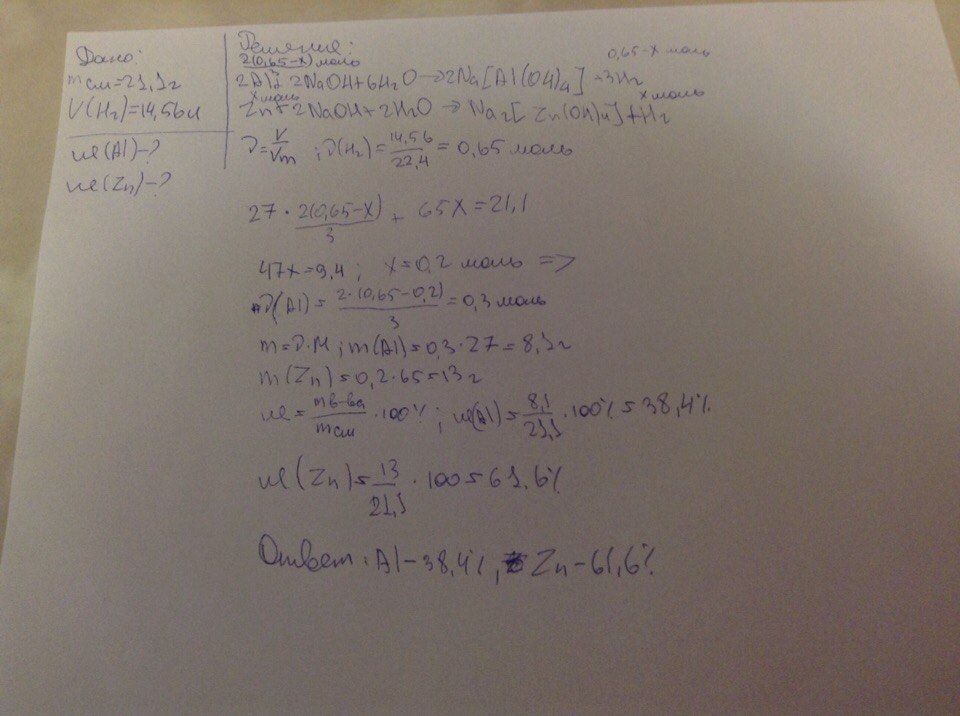 Дано:
mсм=21,1г
V(H₂)=14,56л
ω(Al)-?
ω(Zn)-?
Решение:
2(0,65-x) моль
0,65-x моль
2Al+2NaOH+6H₂O→2Na[Al(OH)₄]+3H₂
x моль
x моль
Zn+2NaOH+2H₂O→Na₂[Zn(OH)₄]+H₂
ν=V/Vm; ν(H₂)=14,56/22,4=0,65 моль
27·2(0,65-x)/3+65x=21,1
47x=9,4; x=0,2 моль =>
ν(Al)=2·(0,65-0,2)/3=0,3 моль
m=ν·M; m(Al)=0,3·27=8,1г
m(Zn)=0,2·65=13г
ω=mв-ва/mсм·100%; ω(Al)=8,1/21,1·100%=38,4%
ω(Zn)=13/21,1·100=61.6%
Ответ: Al-38,4%, Zn-61,6%